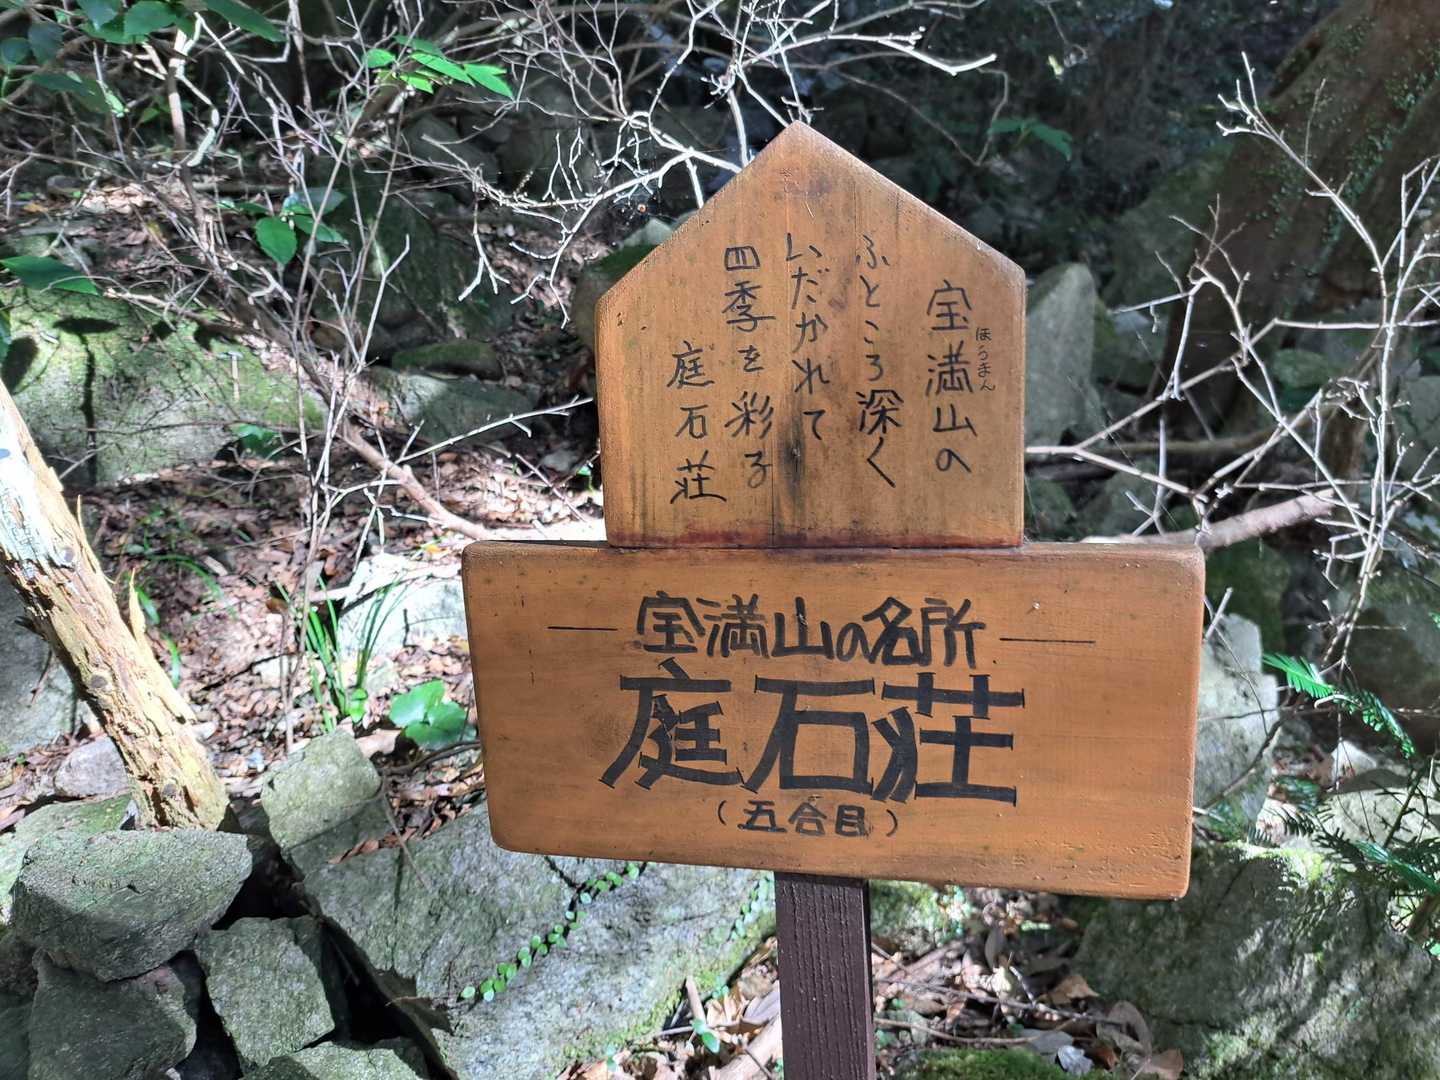 宝満山の
ほうまん
ふところ深く
いだかれて
四季を彩る
庭石荘
宝満山の名所
庭石荘
（五合目）